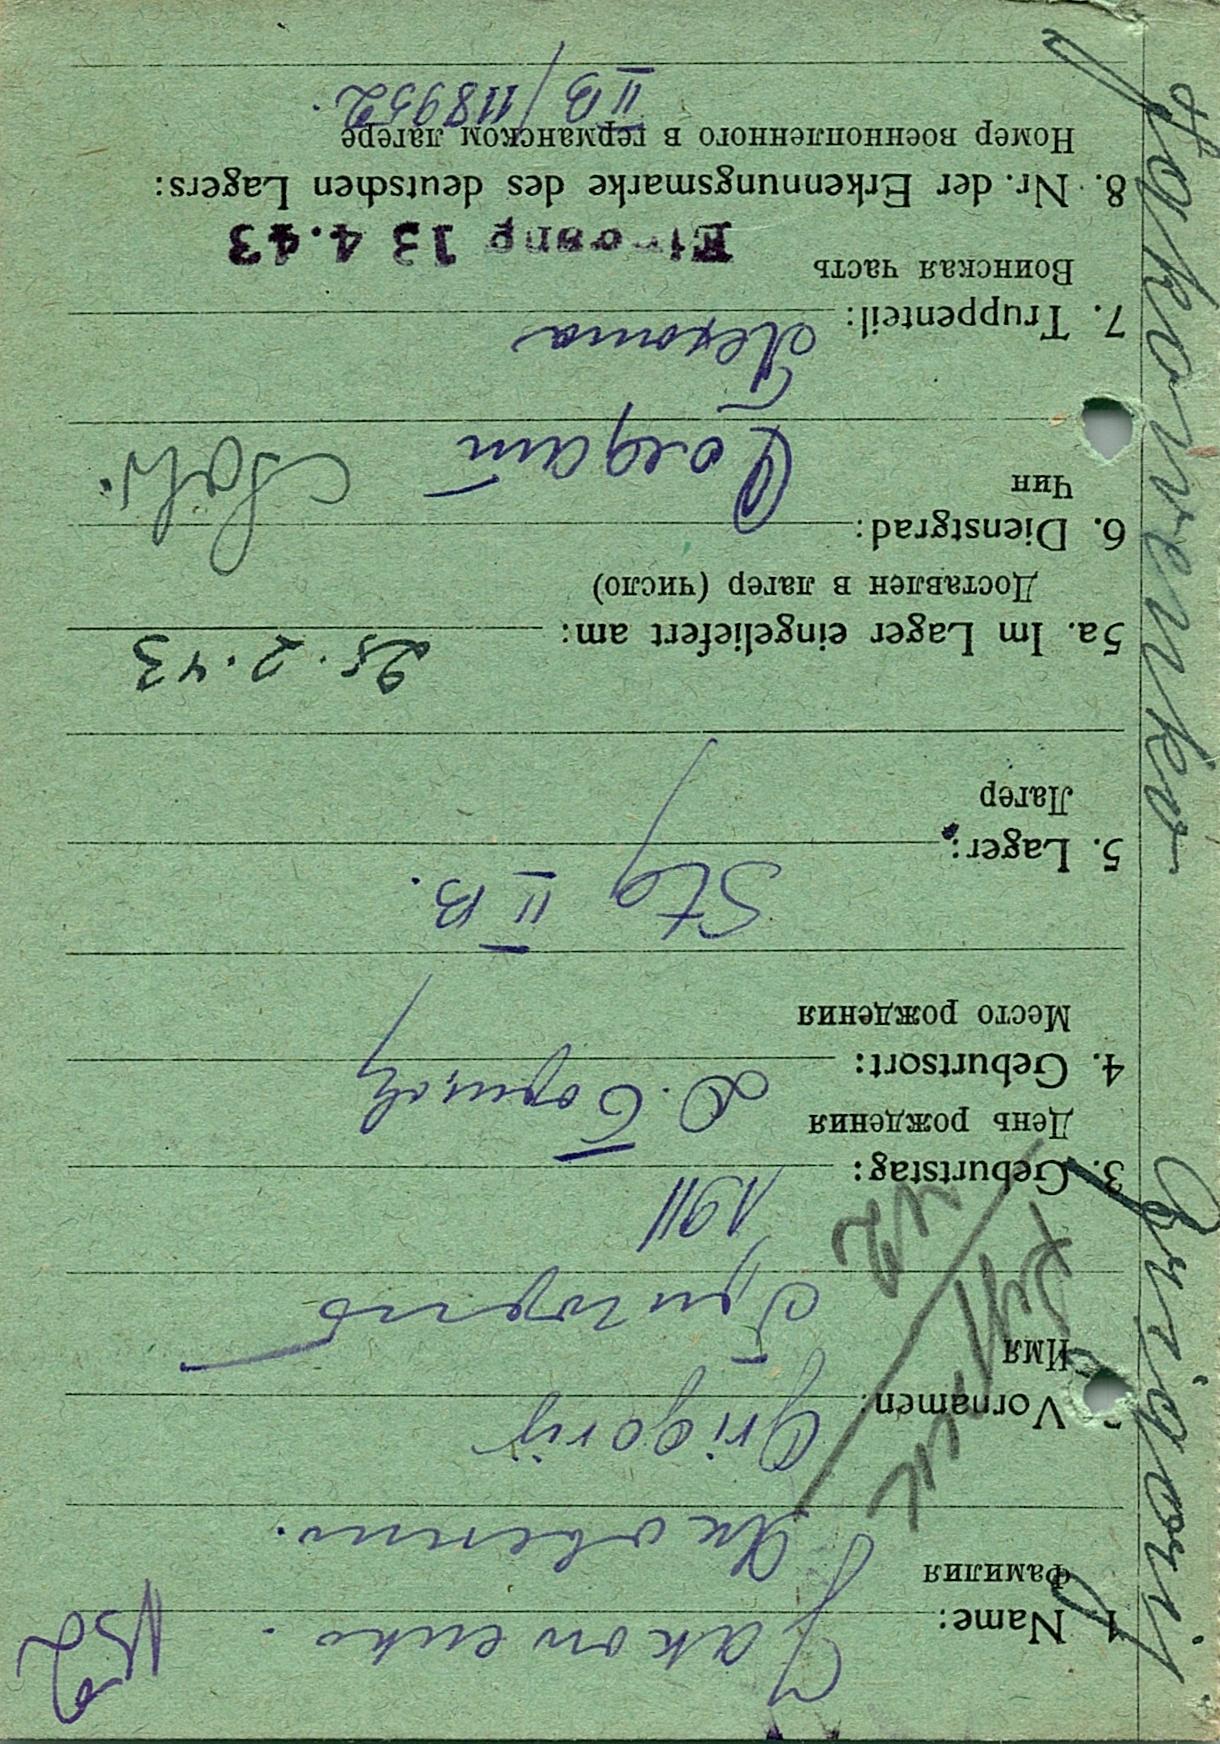 Jakowenko Grigorij
N52
1. Name: Jakowenko.
Фамилия Яковенко.
Vornamen: Grigorij
Имя Григорий
3. Geburtstag: 1911
День рождения
4. Geburtsort:
Место рождения
5. Lager: Stg II B.
Лагер
5a. Im Lager eingeliefert am: 25.2.43
Доставлен в лагер (число)
6. Dienstgrad: Солдат Sold.
Чин
Пехота
7. Truppenteil:
Воинская часть
13 4.43
8. Nr. der Erkennungsmarke des deutschen Lagers:
Номер военнопленного в германском лагере
II B/118952.